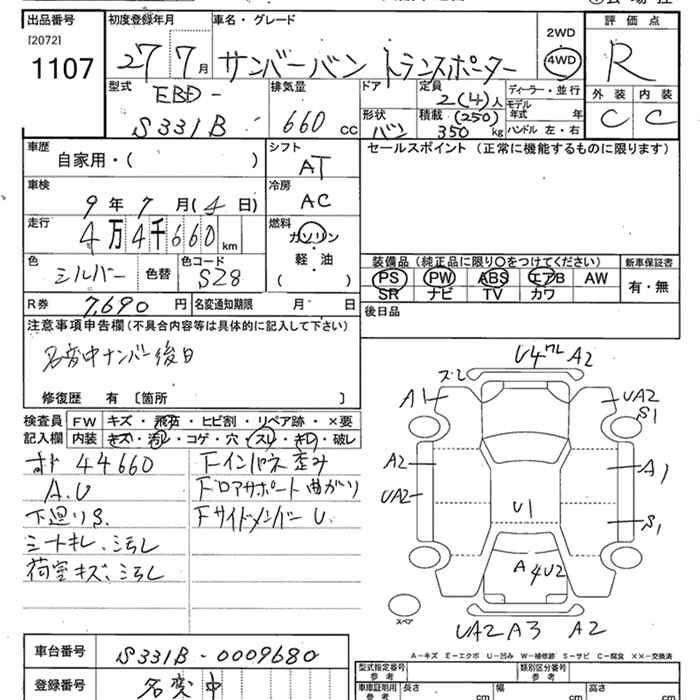 出品番号
[2072]
1107
初度登録年月
27 7月
車名・グレード
サンバーバン トランスポーター
2WD
4WD
評価点
R
型式
EBD-
S331B
排気量
660 cc
ドア
形状
バン
定員
2(4)人
積載 (250)
350 kg
ディーラー・並行
モデル
年式 年
ハンドル 左・右
外装 内装
C C
車歴
自家用・( )
シフト
AT
セールスポイント (正常に機能するものに限ります)
車検
9年7月(4日)
冷房
AC
走行
4万4千660km
燃料
ガソリン
軽・油
( )
色
シルバー
色替
色コード
S28
装備品(純正品に限り○をつけてください)
新車保証書
PS PW ABS エアB AW
SR ナビ TV カワ
有・無
R券 7,690円
名変通知期限 月 日
後日品
注意事項申告欄(不具合内容等は具体的に記入して下さい)
名変中ナンバー後日
修復歴 有 [箇所 ]
検査員
記入欄
FW キズ・飛石・ヒビ割・リペア跡・×要
内装 キズ・汚レ・コゲ・穴・スレ・キレ・破レ
44660
A.U
下廻りS.
シートキレ、汚レ
荷室キズ、汚レ
Fインパネ歪み
Fコアサポート曲がり
FサイドメンバーU.
U4 ワレ A2
ズレ
A1
UA2
S1
A2
A1
UA2
U1
S1
A 4U2
スペア
UA2 A3 A2
A－キズ E－エクボ U－凹み W－補修跡 S－サビ C－腐食 XX－交換済
車台番号
S331B-0009680
登録番号
名変中
型式指定番号
参考
類別区分番号
参考
車庫証明用
参考
長さ cm
幅 cm
高さ cm